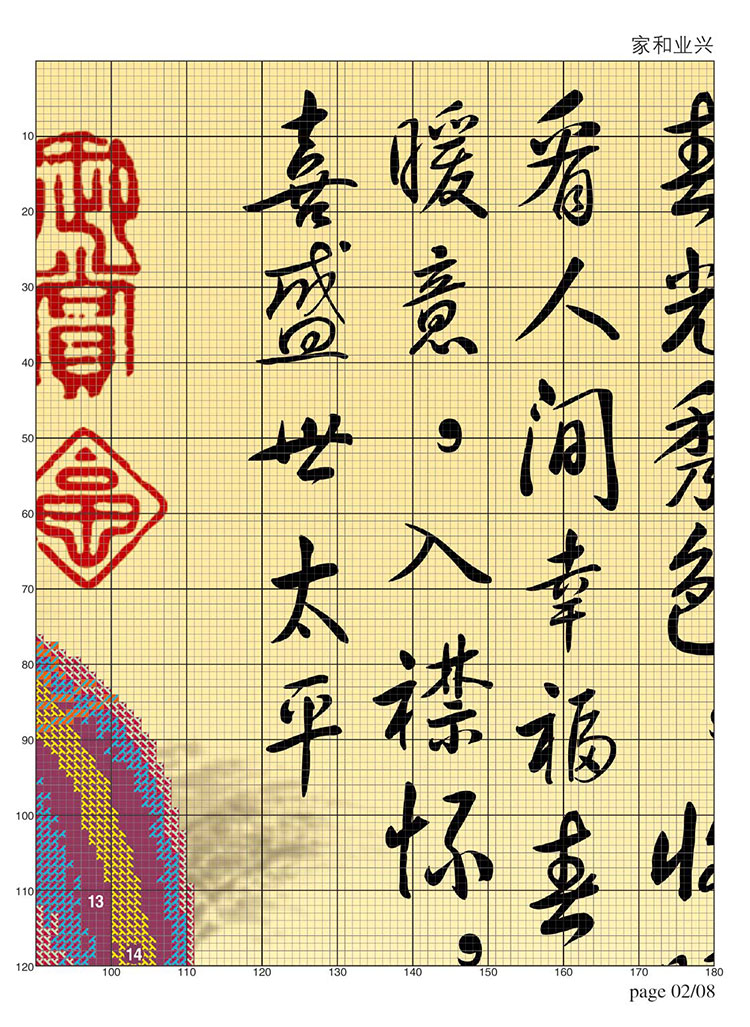 家和业兴
春光秀色
看人间幸福春
暖意，入襟怀，
喜盛世太平
10
20
30
40
50
60
70
80
90
100
110
120
13
14
90 100 110 120 130 140 150 160 170 180
page 02/08